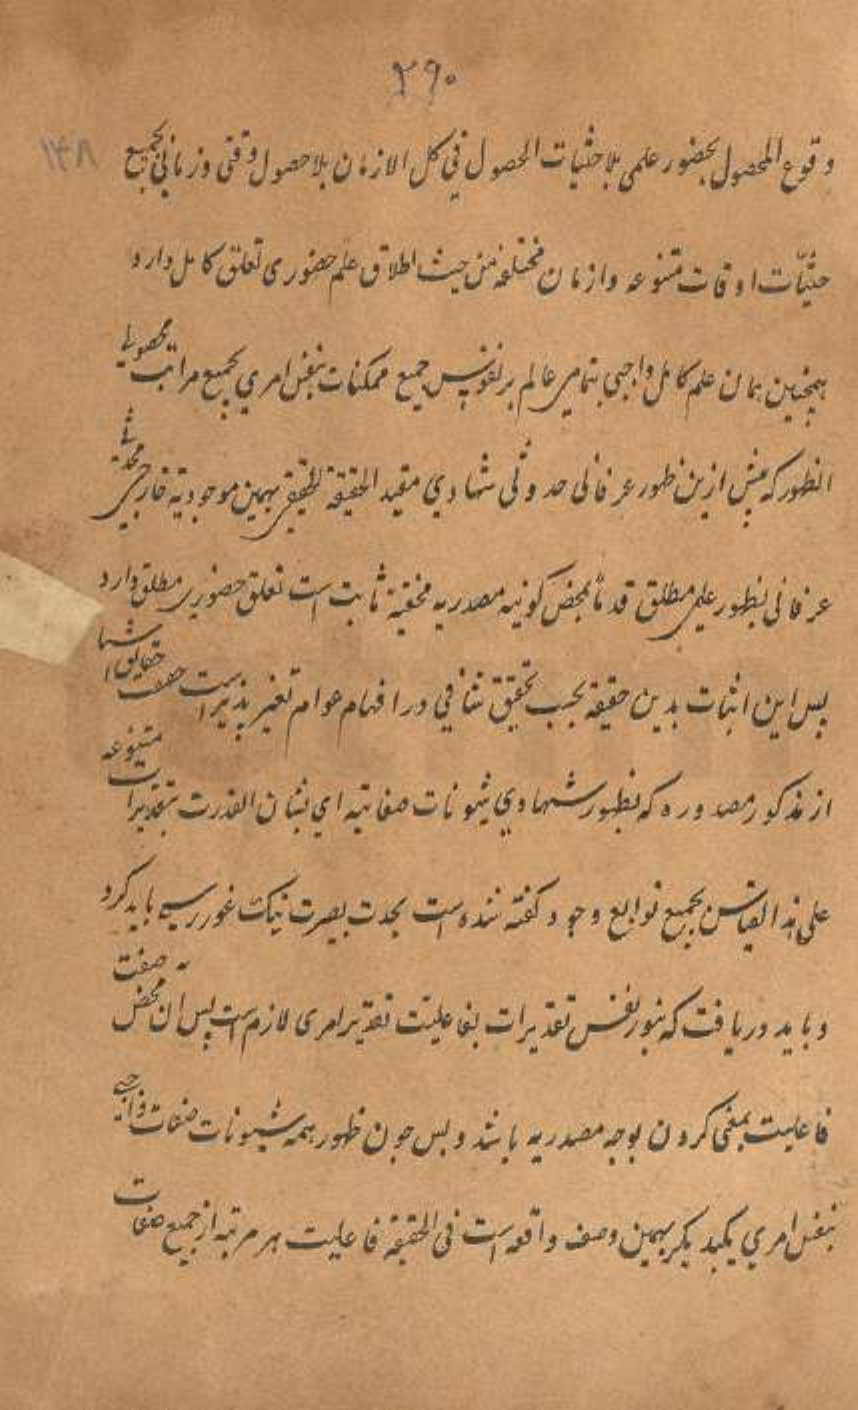 ۲۹۰
۱۴۸
وقوع المحصول بحضور علمی بلا حثیات الحصول فی کل الازمان بلا حصول وقتی و زمانی بجمیع
حثیّات اوقات متنوعه و ازمان مختلفه من حیث اطلاق علم حضوری تعلق کامل دارد
همچنین همان علم کامل واجبی بتمامی عالم بر نفوس جمیع ممکنات بنفس امری بجمیع مراتب محصولی
الظور که پیش ازین ظهور عرفانی حدوثی شهادی مقید الحقیقة بهمین موجودیة خارجی محدثی
عرفانی بظهور علمی مطلق قدماً بمحض کونیه مصدریه مخفیة ثابت است تعلق حضوری مطلق دارد
پس این اثبات بدین حقیقة بحسب تحقیق تنافی در افهام عوام تغیر پذیر است حقایق اشیا
از مذکور مصدوره که بظهور شهادی شیونات صفاتیه ای بشان القدرت بتقدیرات متنوعه
علی هذا القیاس بجمیع توابع وجود گفته شده است بحدت بصیرت نیک غور رسی باید کرد
و باید دریافت که بنور نفس تقدیرات بفاعلیت تقدیر امری لازم است پس ان محض به صفت
فاعلیت بمعنی کردن بوجه مصدریه باشد و بس چون ظهور همه شیونات صفات واجبی
بنفس امری یکبدیگر بهمین وصف واقع است فی الحقیقة فاعلیت هر مرتبه از جمیع صفات